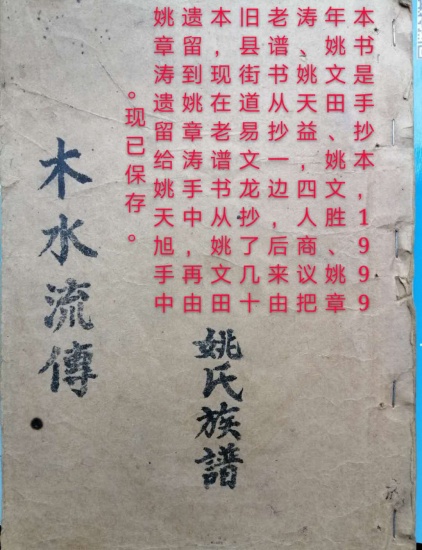 本书是手抄本，1999
年姚文田、姚文胜、姚章
涛、姚天益，四人商议把
老谱书从抄一边，后来由
旧县街道易文龙抄了几十
本，现在老谱书从姚文田
遗留到姚章涛手中，再由
姚章涛遗留给姚天旭手中
。现已保存。
姚氏族譜
木水流傳